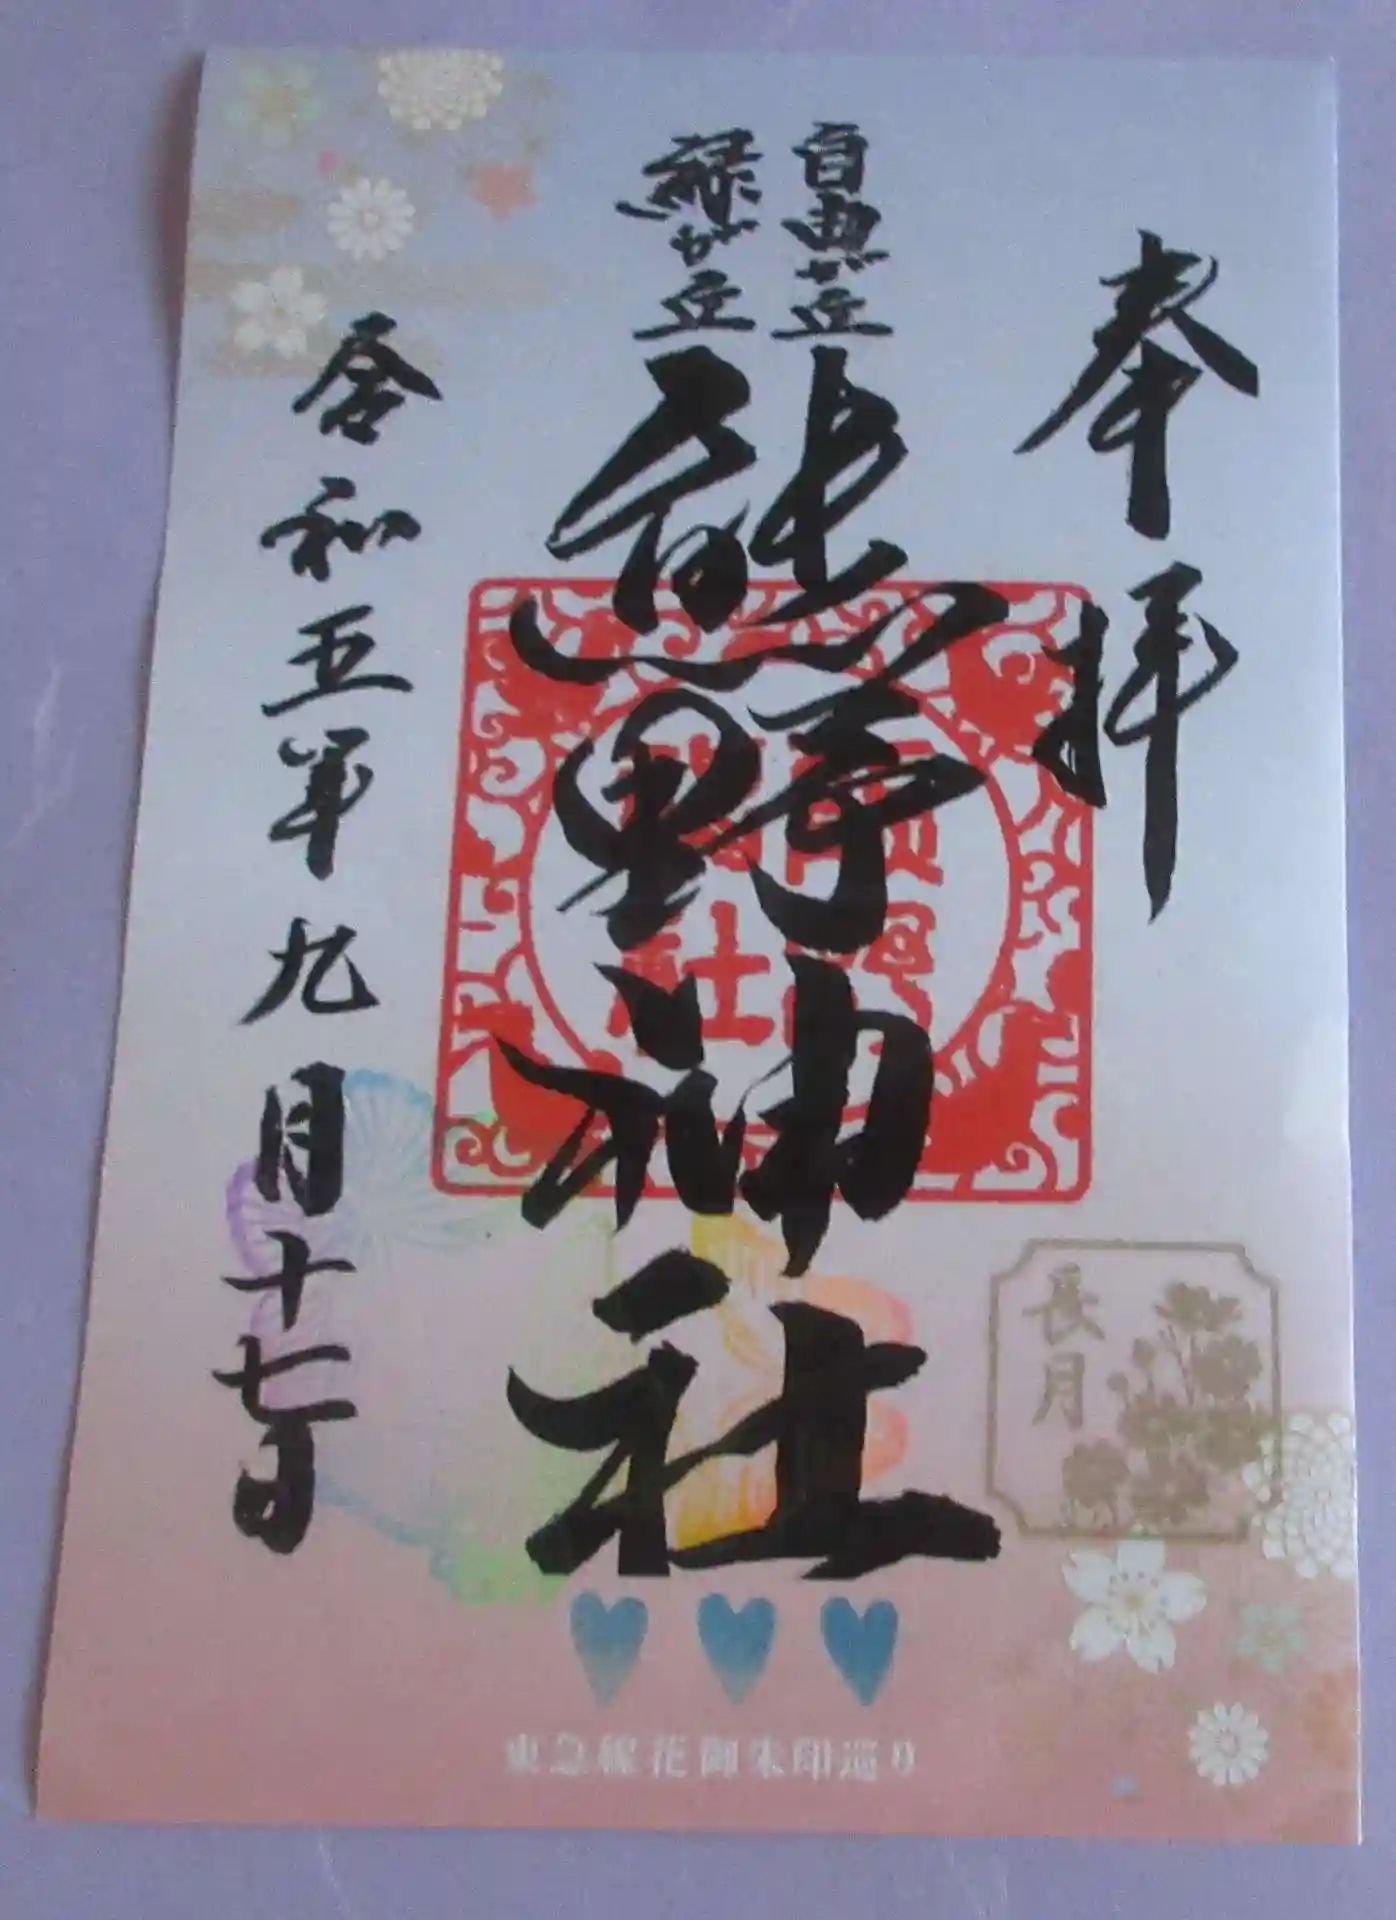 奉拝
自由が丘
緑が丘
熊野神社
令和五年九月十七日
長月
東急線花御朱印巡り